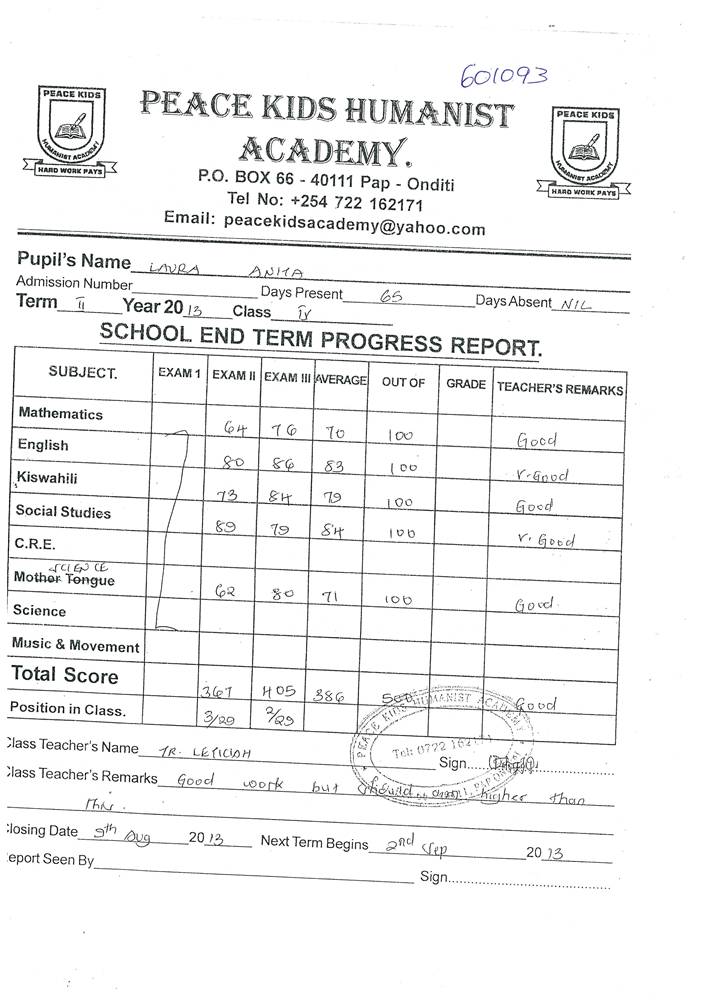 601093
PEACE KIDS
HUMANIST ACADEMY
HARD WORK PAYS
PEACE KIDS HUMANIST
ACADEMY.
PEACE KIDS
HUMANIST ACADEMY
HARD WORK PAYS
P.O. BOX 66 - 40111 Pap - Onditi
Tel No: +254 722 162171
Email: peacekidsacademy@yahoo.com
Pupil's Name LAURA ANITA
Admission Number Days Present 65 Days Absent NIL
Term II Year 2013 Class IV
SCHOOL END TERM PROGRESS REPORT.
SUBJECT. EXAM 1 EXAM II EXAM III AVERAGE OUT OF GRADE TEACHER'S REMARKS
Mathematics 64 76 70 100 Good
English 80 86 83 100 V. Good
Kiswahili 73 84 79 100 Good
Social Studies 89 79 84 100 V. Good
C.R.E.
SCIENCE
Mother Tongue 62 80 71 100 Good
Science
Music & Movement
Total Score 367 405 386 500 Good
Position in Class. 3/29 2/29
PEACE KIDS HUMANIST ACADEMY
Tel: 0722 162171
Class Teacher's Name TR. LETICIAH Sign....
Class Teacher's Remarks Good work but should higher than
this.
Closing Date 9th Aug 2013 Next Term Begins 2nd Sep 2013
eport Seen By Sign........